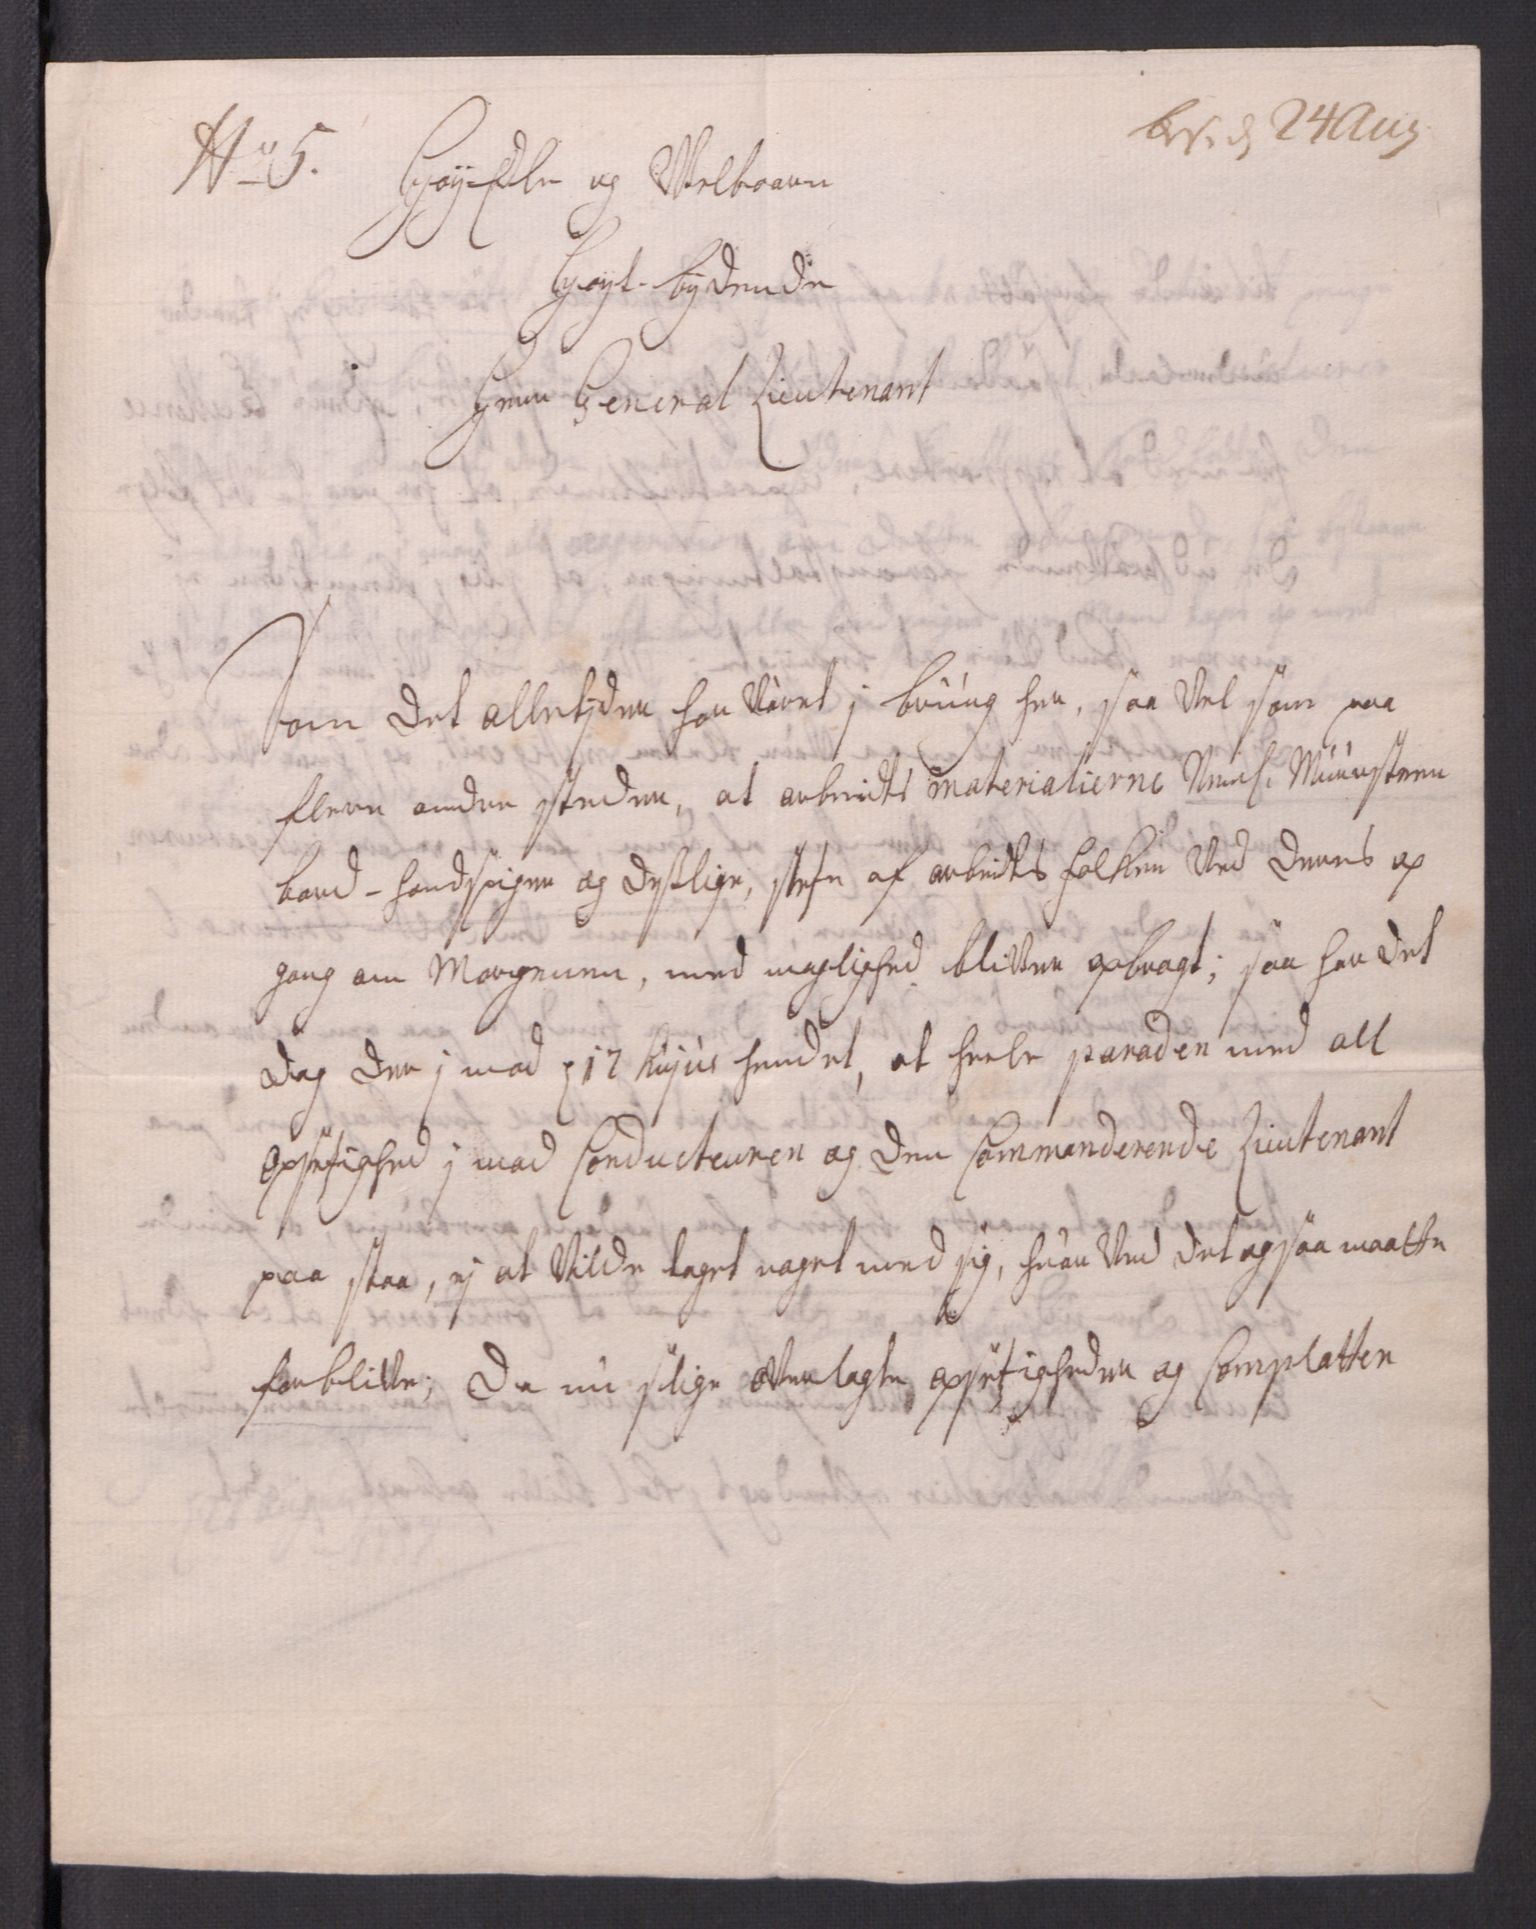 No 5.
24 Aug
Høy-Edle og Welbaarn
Høyt-bydende
Herr General Lieutenant
Som det alletyder har Været j brúúg her, saa Vel som paa
flere andre steder, at arbeids materialierne Neml. Múúrsteen
bord-handspiger og deslige, stefse af arbeids folken Ved deres op
gang om Morgenen, med magelighed bliver opbragt; saa har det
dog der j mod d 17 hujus hendet, at heele paraden med all
opsetsighed j mod Conducteuren og den Commanderende Lieutenant
paa staa, ej at Vilde taget naget med sig, hvor Ved det ogsaa maatte
forblive; Da nú slige overlagte opsetsigheder og Complotter